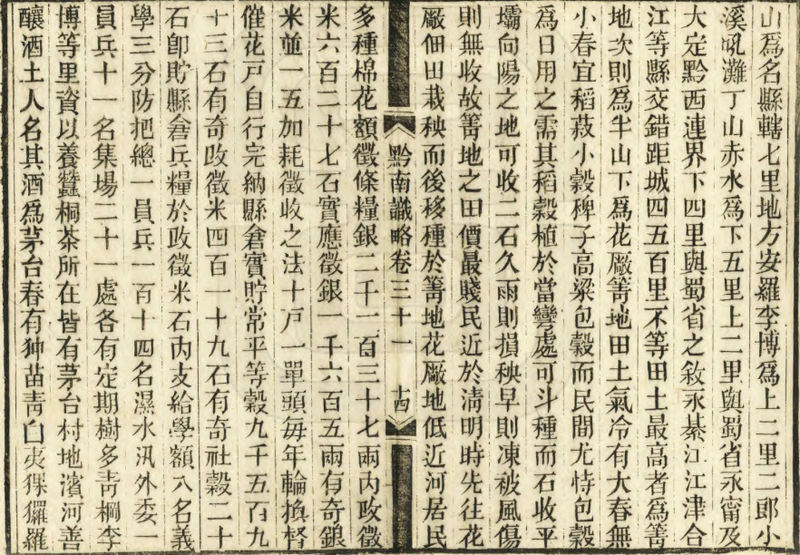 山爲名縣轄七里地方安羅李博爲上二里二郎小
溪吼灘丁山赤水爲下五里上二里與蜀省永甯及
大定黔西連界下四里與蜀省之敘永綦江江津合
江等縣交錯距城四五百里不等田土最高者爲箐
地次則爲半山下爲花厰箐地田土氣冷有大春無
小春宜稻菽小穀稗子高粱包穀而民間尤恃包穀
爲日用之需其稻穀植於當彎處可斗種而石收平
壩向陽之地可收二石久雨則損秧早則凍被風傷
則無收故箐地之田價最賤民近於淸明時先往花
厰佃田栽秧而後移種於箐地花厰地低近河居民
黔南識略卷三十一 十四
多種棉花額徵條糧銀二千一百三十七兩內改徵
米六百二十七石實應徵銀一千六百五兩有奇銀
米並一五加耗徵收之法十戸一單頭每年輪換督
催花戸自行完納縣倉實貯常平等穀九千五百九
十三石有奇改徵米四百一十九石有奇社穀二十
石卽貯縣倉兵糧於改徵米石內支給學額八名義
學三分防把總一員兵一百十四名濕水汛外委一
員兵十一名集場二十一處各有定期樹多靑棡李
博等里資以養蠶桐茶所在皆有茅台村地濱河善
釀酒土人名其酒爲茅台春有狆苗靑白夷猓玀羅